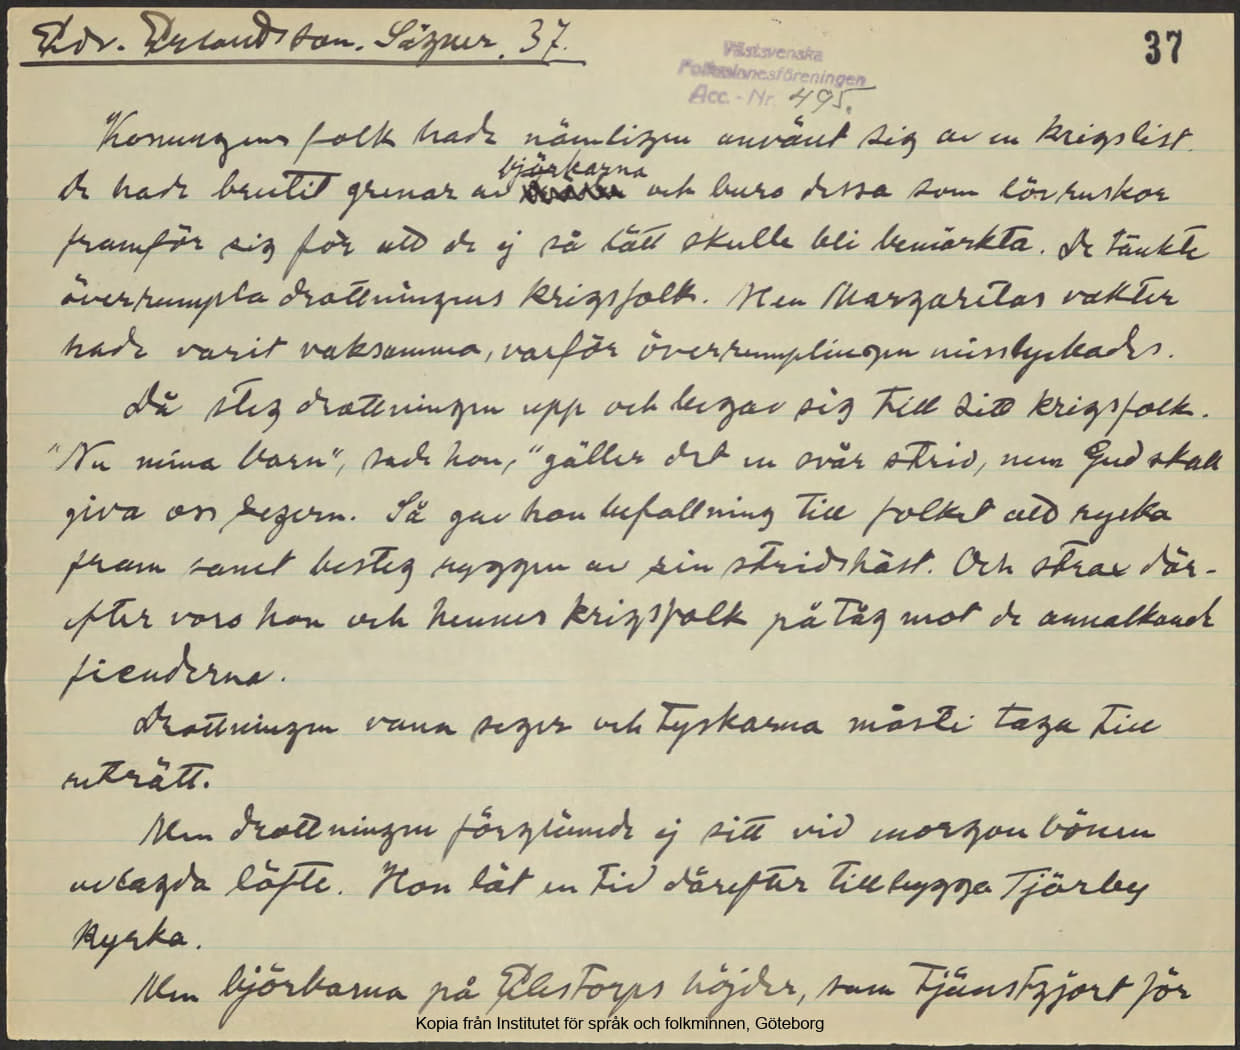 Edv. Erlandsson. Sägner. 37.
37
Västsvenska
Folkminnesföreningen
Acc. - Nr. 495.
Konungens folk hade nämligen använt sig av en krigslist.
björkarna
De hade brutit grenar av och buro dessa som lövruskor
framför sig för att de ej så lätt skulle bli bemärkta. De tänkte
överrumpla drottningens krigsfolk. Men Margaretas vakter
hade varit vaksamma, varför överrumplingen misslyckades.
Då steg drottningen upp och begav sig till sitt krigsfolk.
"Nu mina barn", sade hon, "gäller det en svår strid, men Gud skall
giva oss segern. Så gav hon befallning till folket att rycka
fram samt besteg ryggen av sin stridshäst. Och strax där-
efter voro hon och hennes krigsfolk på tåg mot de annalkande
fienderna.
Drottningen vann seger och tyskarna måste taga till
reträtt.
Men drottningen förglömde ej sitt vid morgonbönen
avlagda löfte. Hon lät en tid därefter tillbygga Tjärby
kyrka.
Men björkarna på Elestorps höjder, som tjänstgjort för
Kopia från Institutet för språk och folkminnen, Göteborg